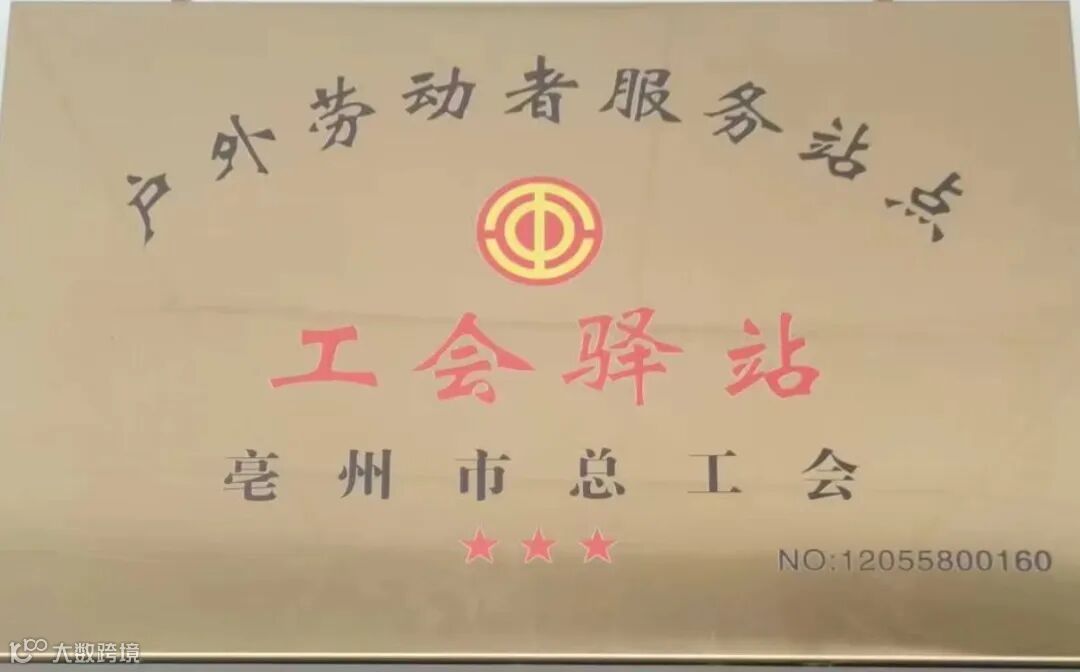 户外劳动者服务站点
工会驿站
亳州市总工会
NO:12055800160
大数跨境